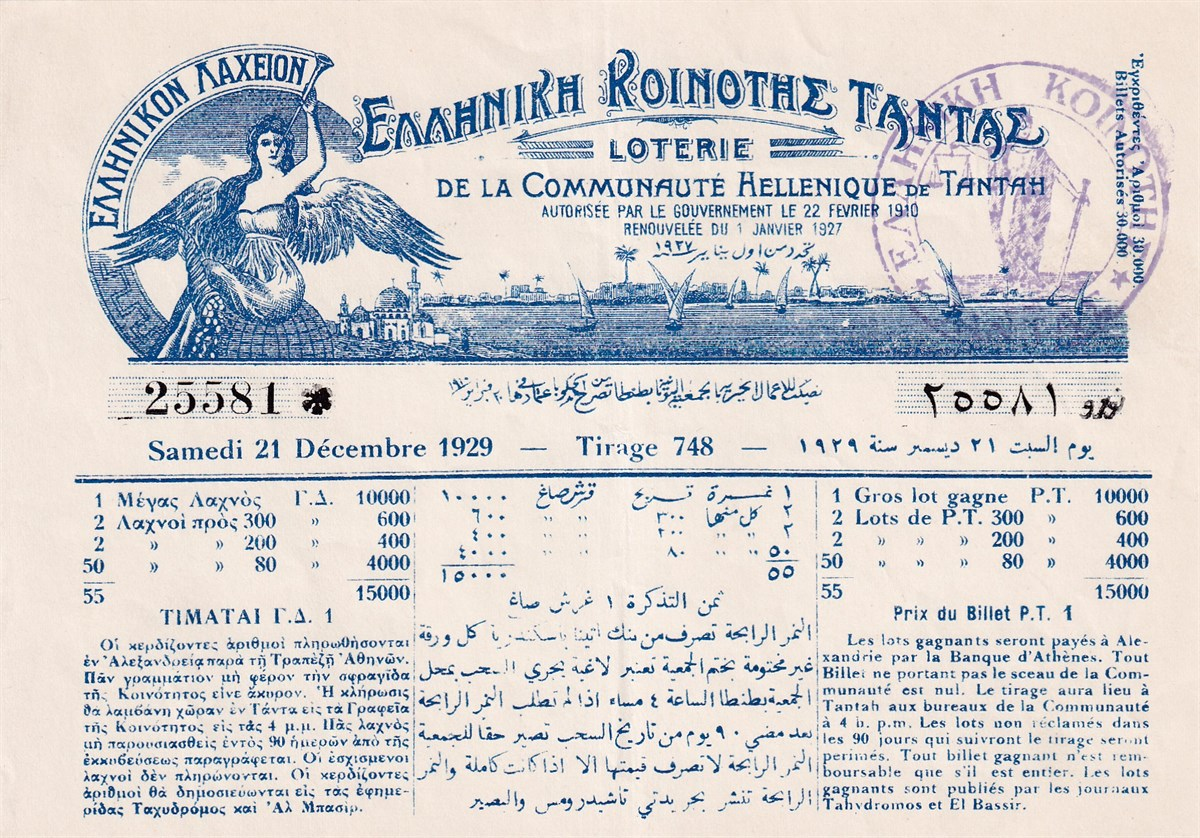 ΕΛΛΗΝΙΚΟΝ ΛΑΧΕΙΟΝ
ΕΛΛΗΝΙΚΗ ΚΟΙΝΟΤΗΣ ΤΑΝΤΑΣ
LOTERIE
DE LA COMMUNAUTÉ HELLENIQUE DE TANTAH
AUTORISÉE PAR LE GOUVERNEMENT LE 22 FEVRIER 1910
RENOUVELÉE DU 1 JANVIER 1927
تجدد من اول يناير ١٩٢٧
Ἐγκριθέντες Ἀριθμοὶ 30.000
Billets Autorisés 30.000
ΕΛΛΗΝΙΚΗ ΚΟΙΝΟΤΗΣ
25581
٢٥٥٨١
Samedi 21 Décembre 1929 — Tirage 748 — يوم السبت ٢١ ديسمبر سنة ١٩٢٩
1 Μέγας Λαχνὸς Γ.Δ. 10000
2 Λαχνοὶ πρὸς 300 » 600
2 » » 200 » 400
50 » » 80 » 4000
55 15000
ΤΙΜΑΤΑΙ Γ.Δ. 1
Οἱ κερδίζοντες ἀριθμοὶ πληρωθήσονται
ἐν Ἀλεξανδρείᾳ παρὰ τῇ Τραπέζῃ Ἀθηνῶν.
Πᾶν γραμμάτιον μὴ φέρον τὴν σφραγῖδα
τῆς Κοινότητος εἶνε ἄκυρον. Ἡ κλήρωσις
θὰ λαμβάνῃ χῶραν ἐν Τάντᾳ εἰς τὰ Γραφεῖα
τῆς Κοινότητος εἰς τὰς 4 μ.μ. Πᾶς λαχνὸς
μὴ παρουσιασθεὶς ἐντὸς 90 ἡμερῶν ἀπὸ τῆς
ἐκκυβεύσεως παραγράφεται. Οἱ ἐσχισμένοι
λαχνοὶ δὲν πληρώνονται. Οἱ κερδίζοντες
ἀριθμοὶ θὰ δημοσιεύωνται εἰς τὰς ἐφημε-
ρίδας Ταχυδρόμος καὶ Ἀλ Μπασίρ.
١ نمرة تربح قرش صاغ ١٠٠٠٠
٢ كل منها ٣٠٠ » » ٦٠٠
٢ » » ٢٠٠ » » ٤٠٠
٥٠ » » ٨٠ » » ٤٠٠٠
٥٥ ١٥٠٠٠
ثمن التذكرة ١ غرش صاغ
النمر الرابحة تصرف من بنك اتينا باسكندرية كل ورقة
غير مختومة بختم الجمعية تعتبر لاغية يجري السحب بمحل
الجمعية بطنطا الساعة ٤ مساء اذا لم تطلب النمر الرابحة
بعد مضي ٩٠ يوم من تاريخ السحب تصير حقا للجمعية
النمر الرابحة لا تصرف قيمتها الا اذا كانت كاملة والنمر
الرابحة تنشر بجريدتي تاشيدرومس والبصير
1 Gros lot gagne P.T. 10000
2 Lots de P.T. 300 » 600
2 » » » 200 » 400
50 » » » 80 » 4000
55 15000
Prix du Billet P.T. 1
Les lots gagnants seront payés à Ale-
xandrie par la Banque d'Athènes. Tout
Billet ne portant pas le sceau de la Com-
munauté est nul. Le tirage aura lieu à
Tantah aux bureaux de la Communauté
à 4 h. p.m. Les lots non réclamés dans
les 90 jours qui suivront le tirage seront
perimés. Tout billet gagnant n'est rem-
boursable que s'il est entier. Les lots
gagnants sont publiés par les journaux
Tahydromos et El Bassir.